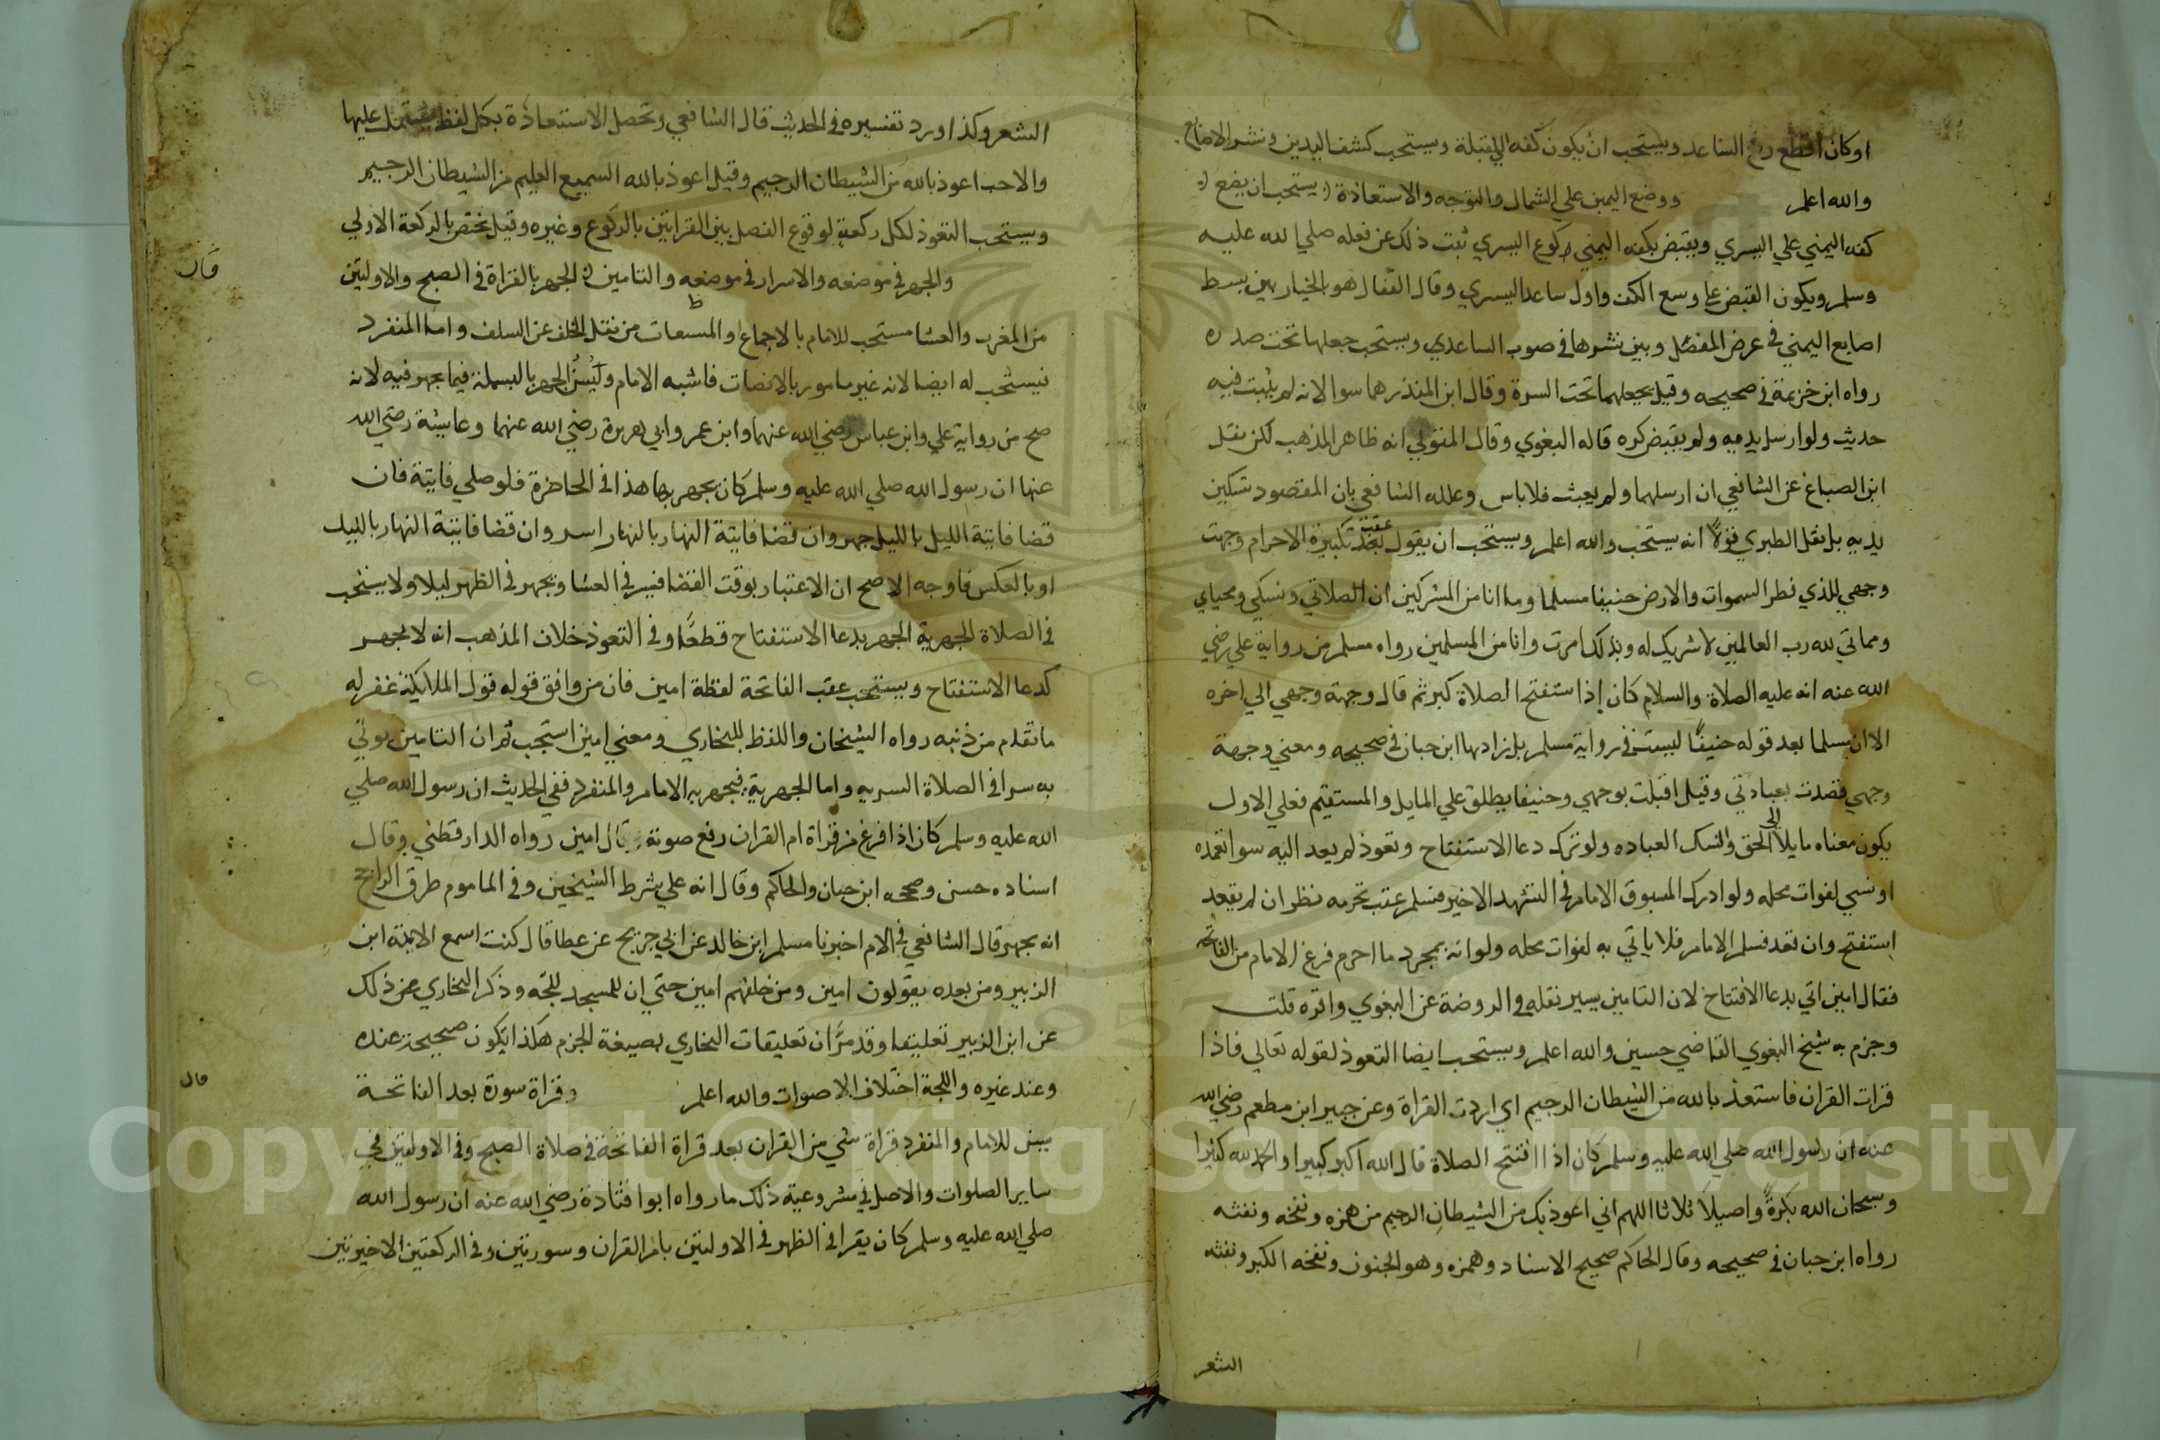 او كان اقطع الساعد ويستحب ان يكون كفه الي القبلة ويستحب كشف اليدين ونشر الاصابع
والله اعلم ووضع اليمين علي الشمال والتوجه والاستعاذة يستحب ان يضع
كفه اليمني علي اليسري ويقبض بكفه اليمني كوع اليسري ثبت ذلك عن فعله صلي الله عليه
وسلم ويكون القبض علي وسع الكف واول ساعد اليسري وقال القفال هو بالخيار بين بسط
اصابع اليمني في عرض المفصل وبين نشرها في صوب الساعدي ويستحب جعلها تحت صدره
رواه ابن خزيمة في صحيحه وقيل يجعلهما تحت السرة وقال ابن المنذر هما سوا لانه لم يثبت فيه
حديث ولو ارسل يديه ولم يقبض كره قاله البغوي وقال المتولي انه ظاهر المذهب لكن نقل
ابن الصباغ عن الشافعي ان ارسلهما ولم يعبث فلا باس وعلله الشافعي بان المقصود تسكين
يديه بل نقل الطبري قولا انه يستحب والله اعلم ويستحب ان يقول عقب تكبيرة الاحرام وجهت
وجهي للذي فطر السموات والارض حنيفا مسلما وما انا من المشركين ان صلاتي ونسكي ومحياي
ومماتي لله رب العالمين لا شريك له وبذلك امرت وانا من المسلمين رواه مسلم من رواية علي رضي
الله عنه انه عليه الصلاة والسلام كان إذا استفتح الصلاة كبر ثم قال وجهت وجهي الي اخره
الا ان مسلما بعد قوله حنيفًا ليست في رواية مسلم بل زادها ابن حبان في صحيحه ومعني وجهت
وجهي قصدت بعبادتي وقيل اقبلت بوجهي وحنيفا يطلق علي المايل والمستقيم فعلي الاول
يكون معناه مايلا الي الحق والنسك العباده ولو ترك دعا الاستفتاح وتعوذ لم يعد اليه سوا تعمده
او نسي لفوات محله ولو ادرك المسبوق الامام في التشهد الاخير فسلم عقب تحرمه نظر ان لم يقعد
استفتح وان قعد فسلم الامام فلا ياتي به لفوات محله ولو انه بمجرد ما احرم فرغ الامام من الفاتحه
فقال امين اتي بدعا الافتتاح لان التامين يسير نقله في الروضة عن البغوي واقره قلت
وجزم به شيخ البغوي القاضي حسين والله اعلم ويستحب ايضا التعوذ لقوله تعالي فاذا
قرات القران فاستعذ بالله من الشيطان الرجيم اي اردت القراة وعن جبير ابن مطعم رضي الله
عنه ان رسول الله صلي الله عليه وسلم كان اذا افتتح الصلاة قال الله اكبر كبيرا والحمد لله كثيرا
وسبحان الله بكرةً واصيلاً ثلاثا اللهم اني اعوذ بك من الشيطان الرجيم من همزه ونفخه ونفثه
رواه ابن حبان في صحيحه وقال الحاكم صحيح الاسناد وهمزه وهو الجنون ونفخه الكبر ونفثه
الشعر
الشعر وكذا ورد تفسيره في الحديث قال الشافعي وتحصل الاستعاذة بكل لفظ يشتمل عليها
والاحب اعوذ بالله من الشيطان الرجيم وقيل اعوذ بالله السميع العليم من الشيطان الرجيم
ويستحب التعوذ لكل ركعة لوقوع الفصل بين القراتين بالركوع وغيره وقيل يختص بالركعة الاولي
والجهر في موضعه والاسرار في موضعه والتامين الجهر بالقراة في الصبح والاولتين
قال
من المغرب والعشا مستحب للامام بالاجماع من نقل الخلف عن السلف واما المنفرد
فيستحب له ايضا لانه غير مامور بالانصات فاشبه الامام ويُسن الجهر بالبسملة فيما يجهر فيه لانه
صح من رواية علي وابن عباس رضي الله عنهما وابن عمر وابي هريرة رضي الله عنهما وعايشة رضي الله
عنها ان رسول الله صلي الله عليه وسلم كان يجهر بها هذا في الحاضرة فلو صلي فايتة فان
قضا فايتة الليل بالليل جهر وان قضا فايتة النهار بالنهار اسر وان قضا فايتة النهار بالليل
او بالعكس فاوجه الاصح ان الاعتبار بوقت القضا فيسر في العشا ويجهر في الظهر ليلا ولا يستحب
في الصلاة الجهرية الجهر بدعا الاستفتاح قطعًا وفي التعوذ خلاف المذهب انه لا يجهر
كدعا الاستفتاح ويستحب عقب الفاتحة لفظة امين فان من وافق قوله قول الملايكة غفر له
ما تقدم من ذنبه رواه الشيخان واللفظ للبخاري ومعني امين استجب ثم ان التامين يوتي
به سرا في الصلاة السريه واما الجهرية فيجهر به الامام والمنفرد ففي الحديث ان رسول الله صلي
الله عليه وسلم كان اذا فرغ من قراة ام القران رفع صوته وقال امين رواه الدارقطني وقال
اسناده حسن وصححه ابن حبان والحاكم وقال انه علي شرط الشيخين وفي الماموم طرق الراجح
انه يجهر قال الشافعي في الام اخبرنا مسلم ابن خالد عن ابي جريج عن عطا قال كنت اسمع الايمة ابن
الزبير ومن بعده يقولون امين ومن خلفهم امين حتي ان للمسجد للجة وذكر البخاري ذلك
عن ابن الزبير تعليقا وقد مرَّ ان تعليقات البخاري بصيغة الجزم هكذا تكون صحيحة عنده
وعند غيره واللجة اختلاف الاصوات والله اعلم وقراة سورة بعد الفاتحة
قال
يسن للامام والمنفرد قراة شي من القران بعد قراة الفاتحة في صلاة الصبح وفي الاولتين في
ساير الصلوات والاصل في مشروعية ذلك ما رواه ابوا قتادة رضي الله عنه ان رسول الله
صلي الله عليه وسلم كان يقرا في الظهر في الاولتين بام القران وسورتين وفي الركعتين الاخيرتين
Copyright © King Saud University
1957